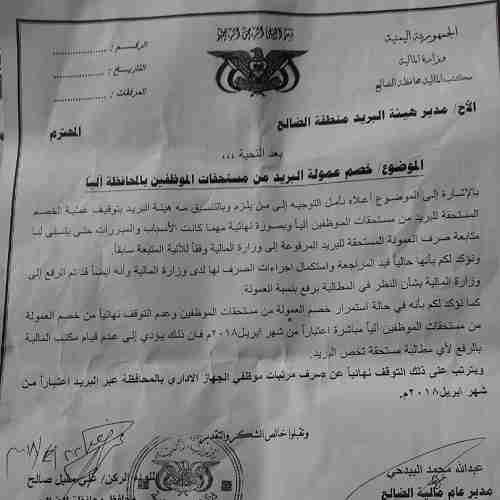 الجمهورية اليمنية
وزارة المالية
مكتب المالية محافظة الضالع
الرقم : ..................
التاريخ : ..................
المرفقات : ..................
الأخ/ مدير هيئة البريد منطقة الضالع
المحترم
بعد التحية ,,,
الموضوع/ خصم عمولة البريد من مستحقات الموظفين بالمحافظة آلياً
بالإشارة إلى الموضوع أعلاه نأمل التوجيه إلى من يلزم وبالتنسيق مع هيئة البريد بتوقيف عملية الخصم
المستحقة للبريد من مستحقات الموظفين آلياً وبصورة نهائية مهما كانت الأسباب والمبررات حتى يتسنى لنا
متابعة صرف العمولة المستحقة للبريد المرفوعة إلى وزارة المالية وفقاً للآلية المتبعة سابقاً.
ونؤكد لكم بأنها حالياً قيد المراجعة واستكمال اجراءات الصرف لها لدى وزارة المالية وأنه ايضاً قد تم الرفع إلى
وزارة المالية بشأن النظر في المطالبة برفع بنسبة العمولة
كما نؤكد لكم بأنه في حالة استمرار خصم العمولة من مستحقات الموظفين وعدم التوقف نهائياً من خصم العمولة
من مستحقات الموظفين آلياً مباشرة اعتباراً من شهر ابريل٢٠١٨م فإن ذلك يؤدي إلى عدم قيام مكتب المالية
بالرفع لأي مطالبة مستحقة تخص البريد.
ويترتب على ذلك التوقف نهائياً عن صرف مرتبات موظفي الجهاز الاداري بالمحافظة عبر البريد اعتباراً من
شهر ابريل٢٠١٨م.
وتقبلوا خالص الشكر والتقدير
عبدالله محمد البيدحي
مدير عام مالية الضالع
اللواء الركن/ علي مقبل صالح
محافظ محافظة الضالع